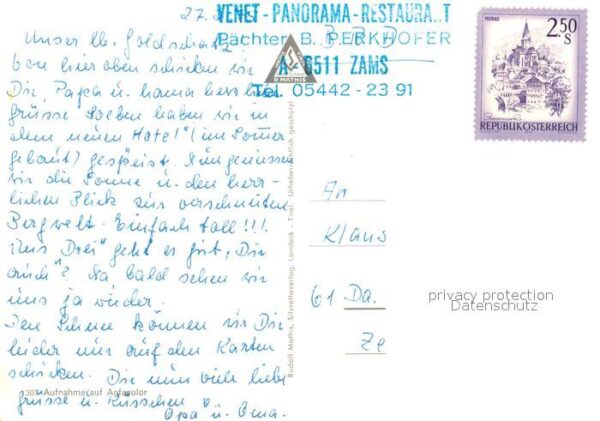 27.
VENET - PANORAMA - RESTAURA T
Pächter B. PERKHOFER
A 6511 ZAMS
Tel. 05442 - 23 91
B R D
R MATHIS
MURAU
2.50
S
REPUBLIK ÖSTERREICH
Unser lb. Goldschatz
Von hier oben schicken wir
Dir, Papa u. Mama herzliche
grüsse. Soeben haben wir in
dem neuen Hotel" (im Sommer
gebaut) gespeist. Nun geniessen
wir die Sonne u. den herr-
lichen Blick zur verschneiten
Bergwelt. Einfach toll!!!
"Uns Drei" geht es gut, Dir
auch"? Na bald sehen wir
uns ja wieder.
Den Schnee können wir Dir
leider nur auf den Karten
schicken. Dir nun viele liebe
grüsse u. Küsschen
Opa u. Oma.
307 Aufnahme auf Agfacolor
Rudolf Mathis, Silvrettaverlag, Landeck - Tirol Urheberrechtlich geschützt
An
Klaus
61 Da.
Ze
privacy protection
Datenschutz